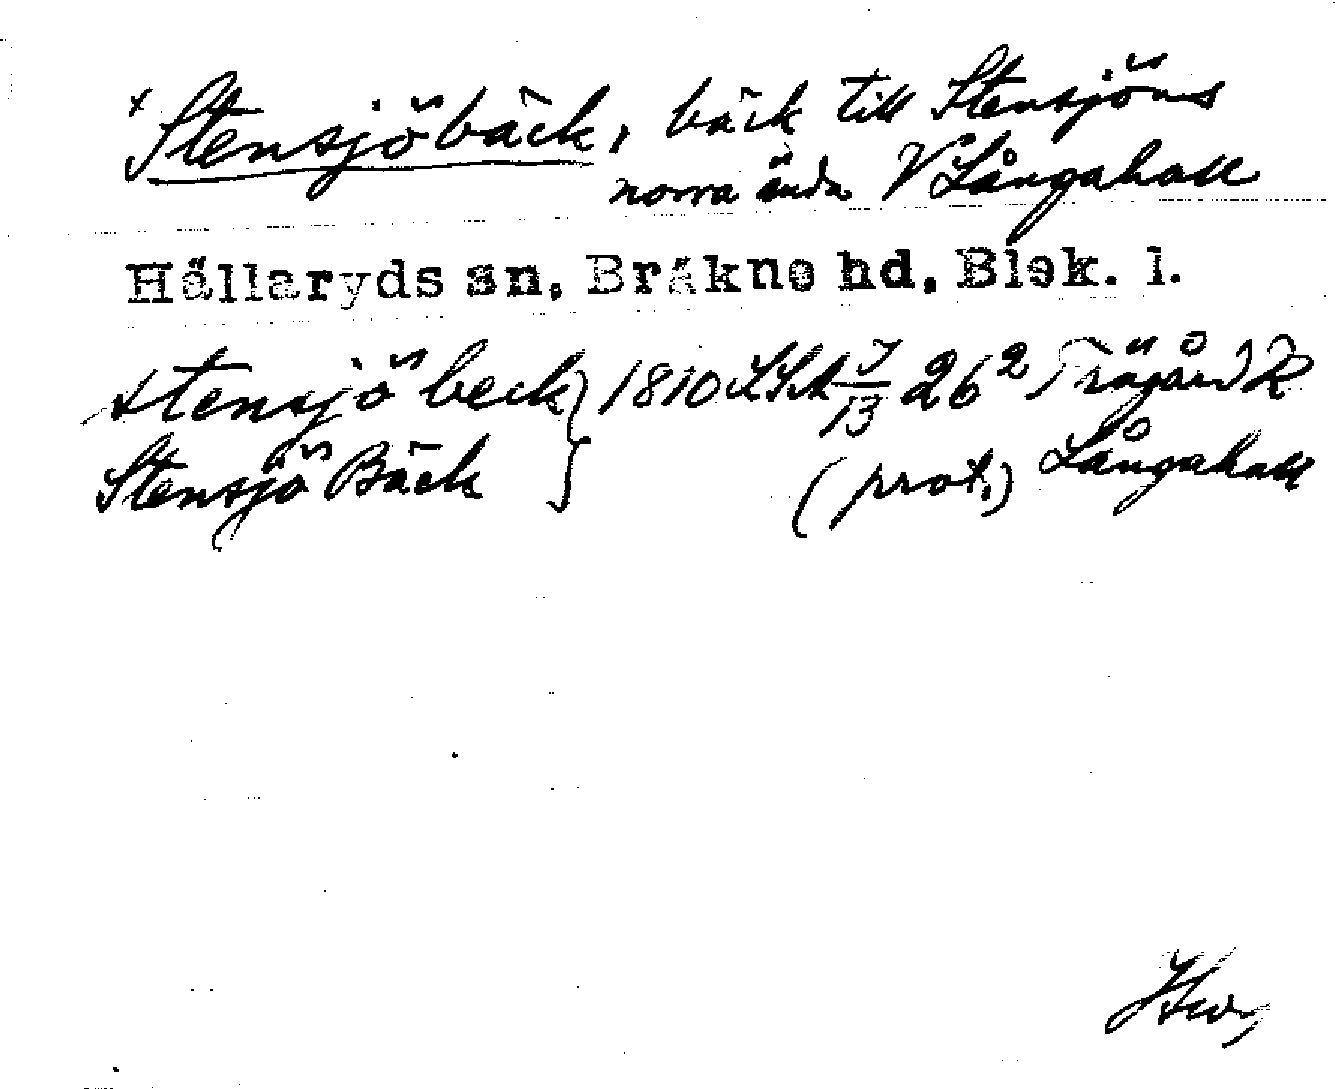 + Stensjöbäck, bäck till Stensjöns
norra ända V Långahall
Hällaryds sn, Bräkne hd, Blek. l.
Stensjö beck } 1810 LSA J/13 26² Trägård R
Stensjö Bäck } (prot.) Långahall